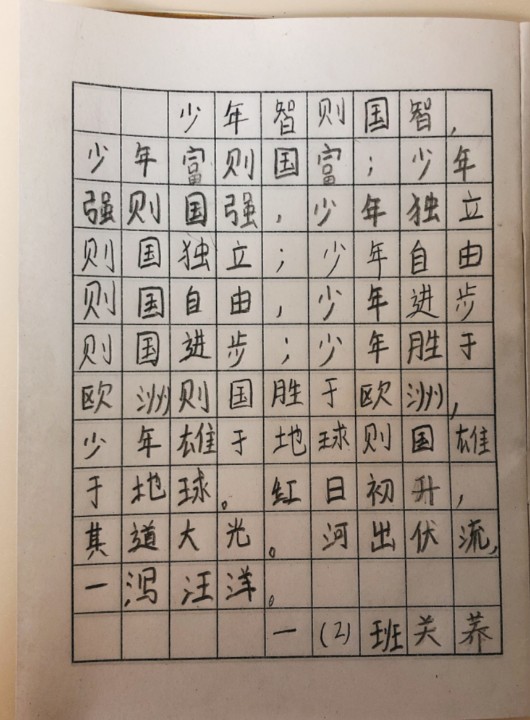 少年智则国智，
少年富则国富；少年
强则国强，少年独立
则国独立；少年自由
则国自由，少年进步
则国进步；少年胜于
欧洲则国胜于欧洲，
少年雄于地球则国雄
于地球。红日初升，
其道大光。河出伏流，
一泻汪洋。
一（2）班关荞